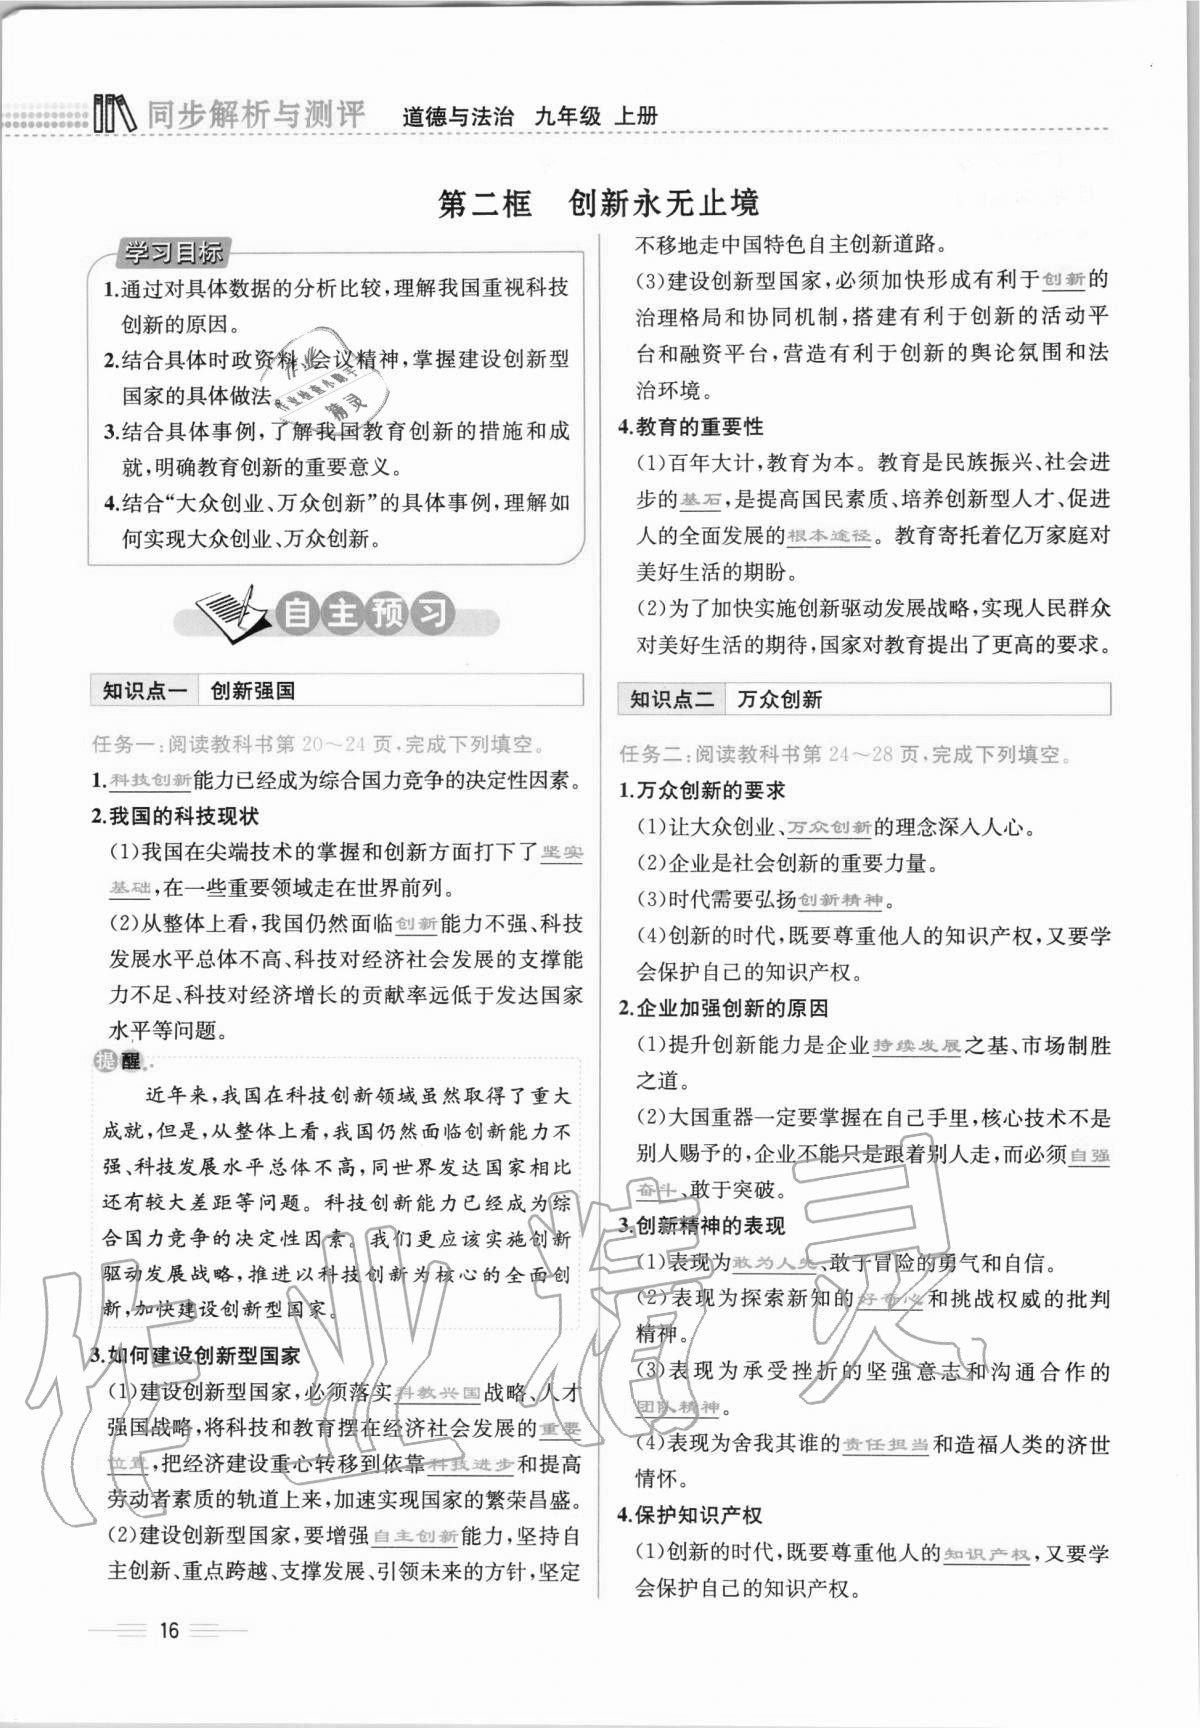 同步解析与测评 道德与法治 九年级 上册
第二框 创新永无止境
学习目标
1.通过对具体数据的分析比较,理解我国重视科技
创新的原因。
2.结合具体时政资料、会议精神,掌握建设创新型
国家的具体做法。
3.结合具体事例,了解我国教育创新的措施和成
就,明确教育创新的重要意义。
4.结合“大众创业、万众创新”的具体事例,理解如
何实现大众创业、万众创新。
自主预习
知识点一 创新强国
任务一:阅读教科书第20~24页,完成下列填空。
1.科技创新能力已经成为综合国力竞争的决定性因素。
2.我国的科技现状
(1)我国在尖端技术的掌握和创新方面打下了坚实
基础,在一些重要领域走在世界前列。
(2)从整体上看,我国仍然面临创新能力不强、科技
发展水平总体不高、科技对经济社会发展的支撑能
力不足、科技对经济增长的贡献率远低于发达国家
水平等问题。
提醒
近年来,我国在科技创新领域虽然取得了重大
成就,但是,从整体上看,我国仍然面临创新能力不
强、科技发展水平总体不高,同世界发达国家相比
还有较大差距等问题。科技创新能力已经成为综
合国力竞争的决定性因素。我们更应该实施创新
驱动发展战略,推进以科技创新为核心的全面创
新,加快建设创新型国家。
3.如何建设创新型国家
(1)建设创新型国家,必须落实科教兴国战略、人才
强国战略,将科技和教育摆在经济社会发展的重要
位置,把经济建设重心转移到依靠科技进步和提高
劳动者素质的轨道上来,加速实现国家的繁荣昌盛。
(2)建设创新型国家,要增强自主创新能力,坚持自
主创新、重点跨越、支撑发展、引领未来的方针,坚定
不移地走中国特色自主创新道路。
(3)建设创新型国家,必须加快形成有利于创新的
治理格局和协同机制,搭建有利于创新的活动平
台和融资平台,营造有利于创新的舆论氛围和法
治环境。
4.教育的重要性
(1)百年大计,教育为本。教育是民族振兴、社会进
步的基石,是提高国民素质、培养创新型人才、促进
人的全面发展的根本途径。教育寄托着亿万家庭对
美好生活的期盼。
(2)为了加快实施创新驱动发展战略,实现人民群众
对美好生活的期待,国家对教育提出了更高的要求。
知识点二 万众创新
任务二:阅读教科书第24~28页,完成下列填空。
1.万众创新的要求
(1)让大众创业、万众创新的理念深入人心。
(2)企业是社会创新的重要力量。
(3)时代需要弘扬创新精神。
(4)创新的时代,既要尊重他人的知识产权,又要学
会保护自己的知识产权。
2.企业加强创新的原因
(1)提升创新能力是企业持续发展之基、市场制胜
之道。
(2)大国重器一定要掌握在自己手里,核心技术不是
别人赐予的,企业不能只是跟着别人走,而必须自强
奋斗、敢于突破。
3.创新精神的表现
(1)表现为敢为人先、敢于冒险的勇气和自信。
(2)表现为探索新知的好奇心和挑战权威的批判
精神。
(3)表现为承受挫折的坚强意志和沟通合作的
团队精神。
(4)表现为舍我其谁的责任担当和造福人类的济世
情怀。
4.保护知识产权
(1)创新的时代,既要尊重他人的知识产权,又要学
会保护自己的知识产权。
16
作业精灵